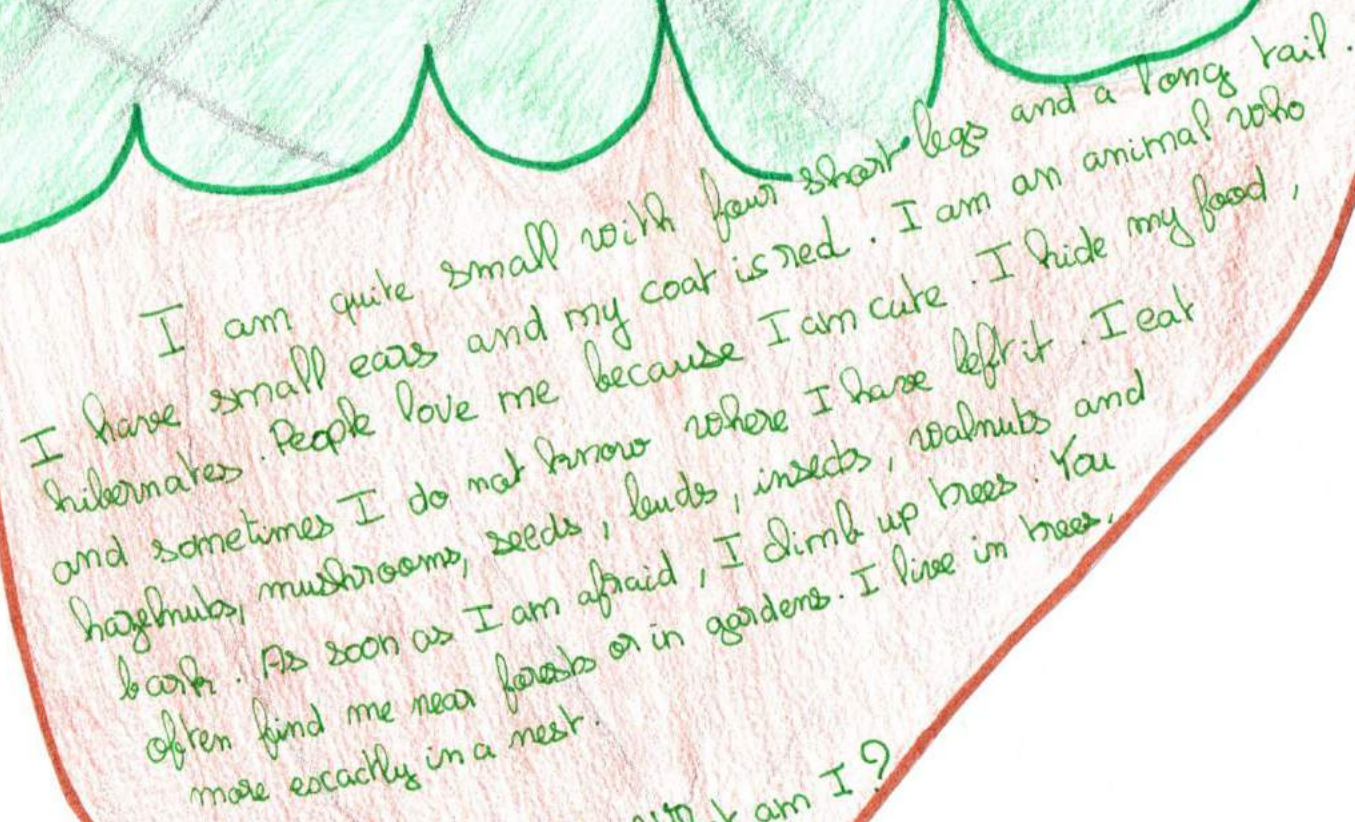 I am quite small with four short legs and a long tail.
I have small ears and my coat is red. I am an animal who
hibernates. People love me because I am cute. I hide my food,
and sometimes I do not know where I have left it. I eat
hazelnuts, mushrooms, seeds, buds, insects, walnuts and
bark. As soon as I am afraid, I climb up trees. You
often find me near forests or in gardens. I live in trees,
more escactly in a nest.
am I?